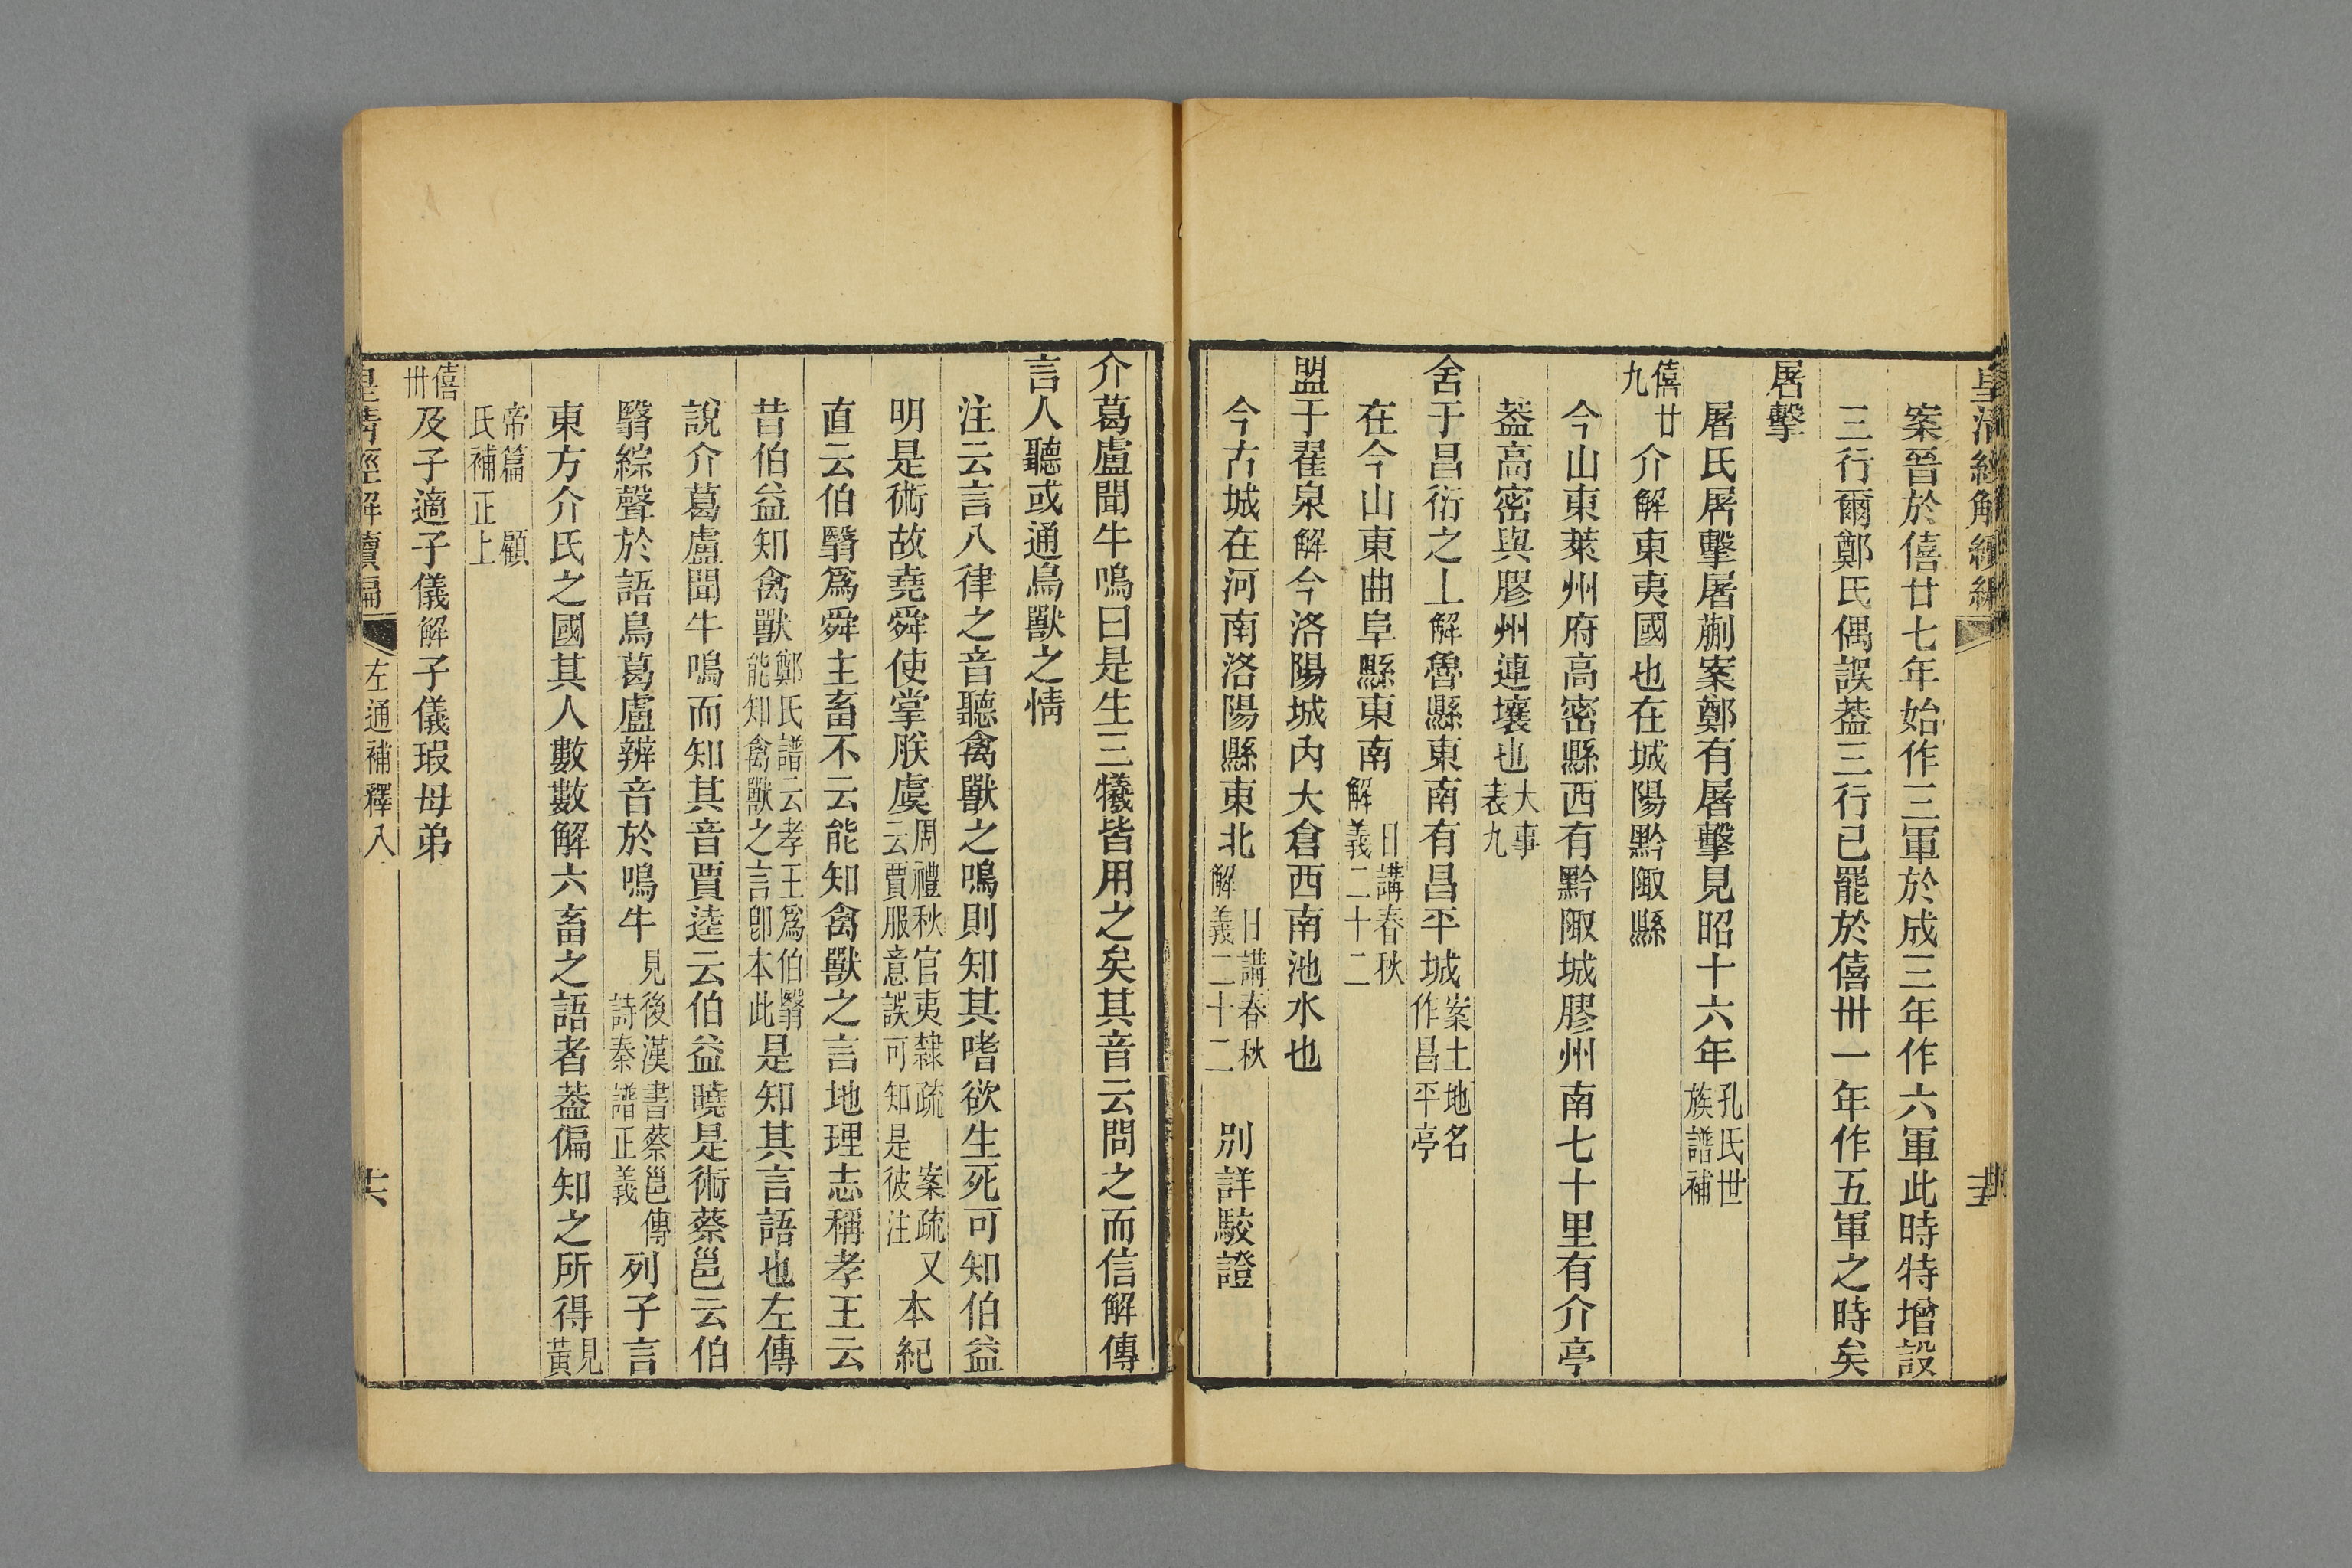 皇清經解續編
案晉於僖廿七年始作三軍於成三年作六軍此時特增設
三行爾鄭氏偶誤葢三行已罷於僖卅一年作五軍之時矣
屠擊
屠氏屠擊屠蒯案鄭有屠擊見昭十六年孔氏世族譜補
僖廿九介解東夷國也在城陽黔陬縣
今山東萊州府高密縣西有黔陬城膠州南七十里有介亭
葢高密與膠州連壤也大事表九
舍于昌衍之上解魯縣東南有昌平城案土地名作昌平亭
在今山東曲阜縣東南日講春秋解義二十二
盟于翟泉解今洛陽城內大倉西南池水也
今古城在河南洛陽縣東北日講春秋解義二十二 別詳駁證
介葛盧聞牛鳴曰是生三犧皆用之矣其音云問之而信解傳
言人聽或通鳥獸之情
注云言八律之音聽禽獸之鳴則知其嗜欲生死可知伯益
明是術故堯舜使掌朕虞周禮秋官夷隸疏云賈服意誤可知是彼注案疏又本紀
直云伯翳爲舜主畜不云能知禽獸之言地理志稱孝王云
昔伯益知禽獸鄭氏譜云孝王爲伯翳能知禽獸之言卽本此是知其言語也左傳
說介葛盧聞牛鳴而知其音賈逵云伯益曉是術蔡邕云伯
翳綜聲於語鳥葛盧辨音於鳴牛見後漢書蔡邕傳詩秦譜正義列子言
東方介氏之國其人數數解六畜之語者葢偏知之所得見黃
帝篇 顧氏補正上
僖卅及子適子儀解子儀瑕母弟
皇清經解續編 左通補釋八 六